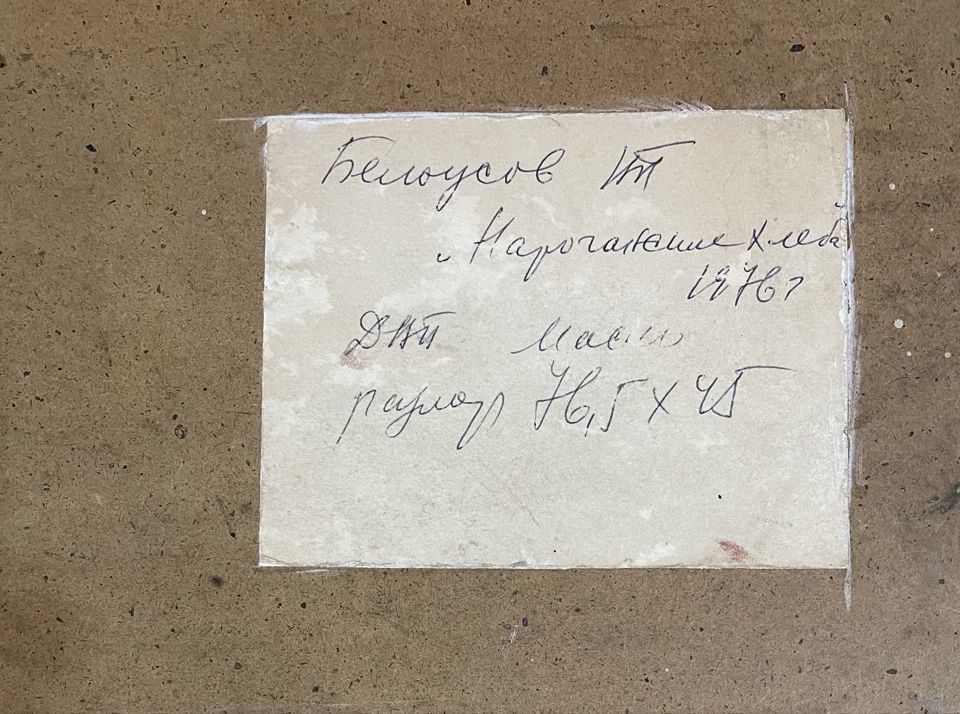 Белоусов ПТ
„Нарогание хлеба
1976 г
ДВП Масло
размер 76,5 х 45